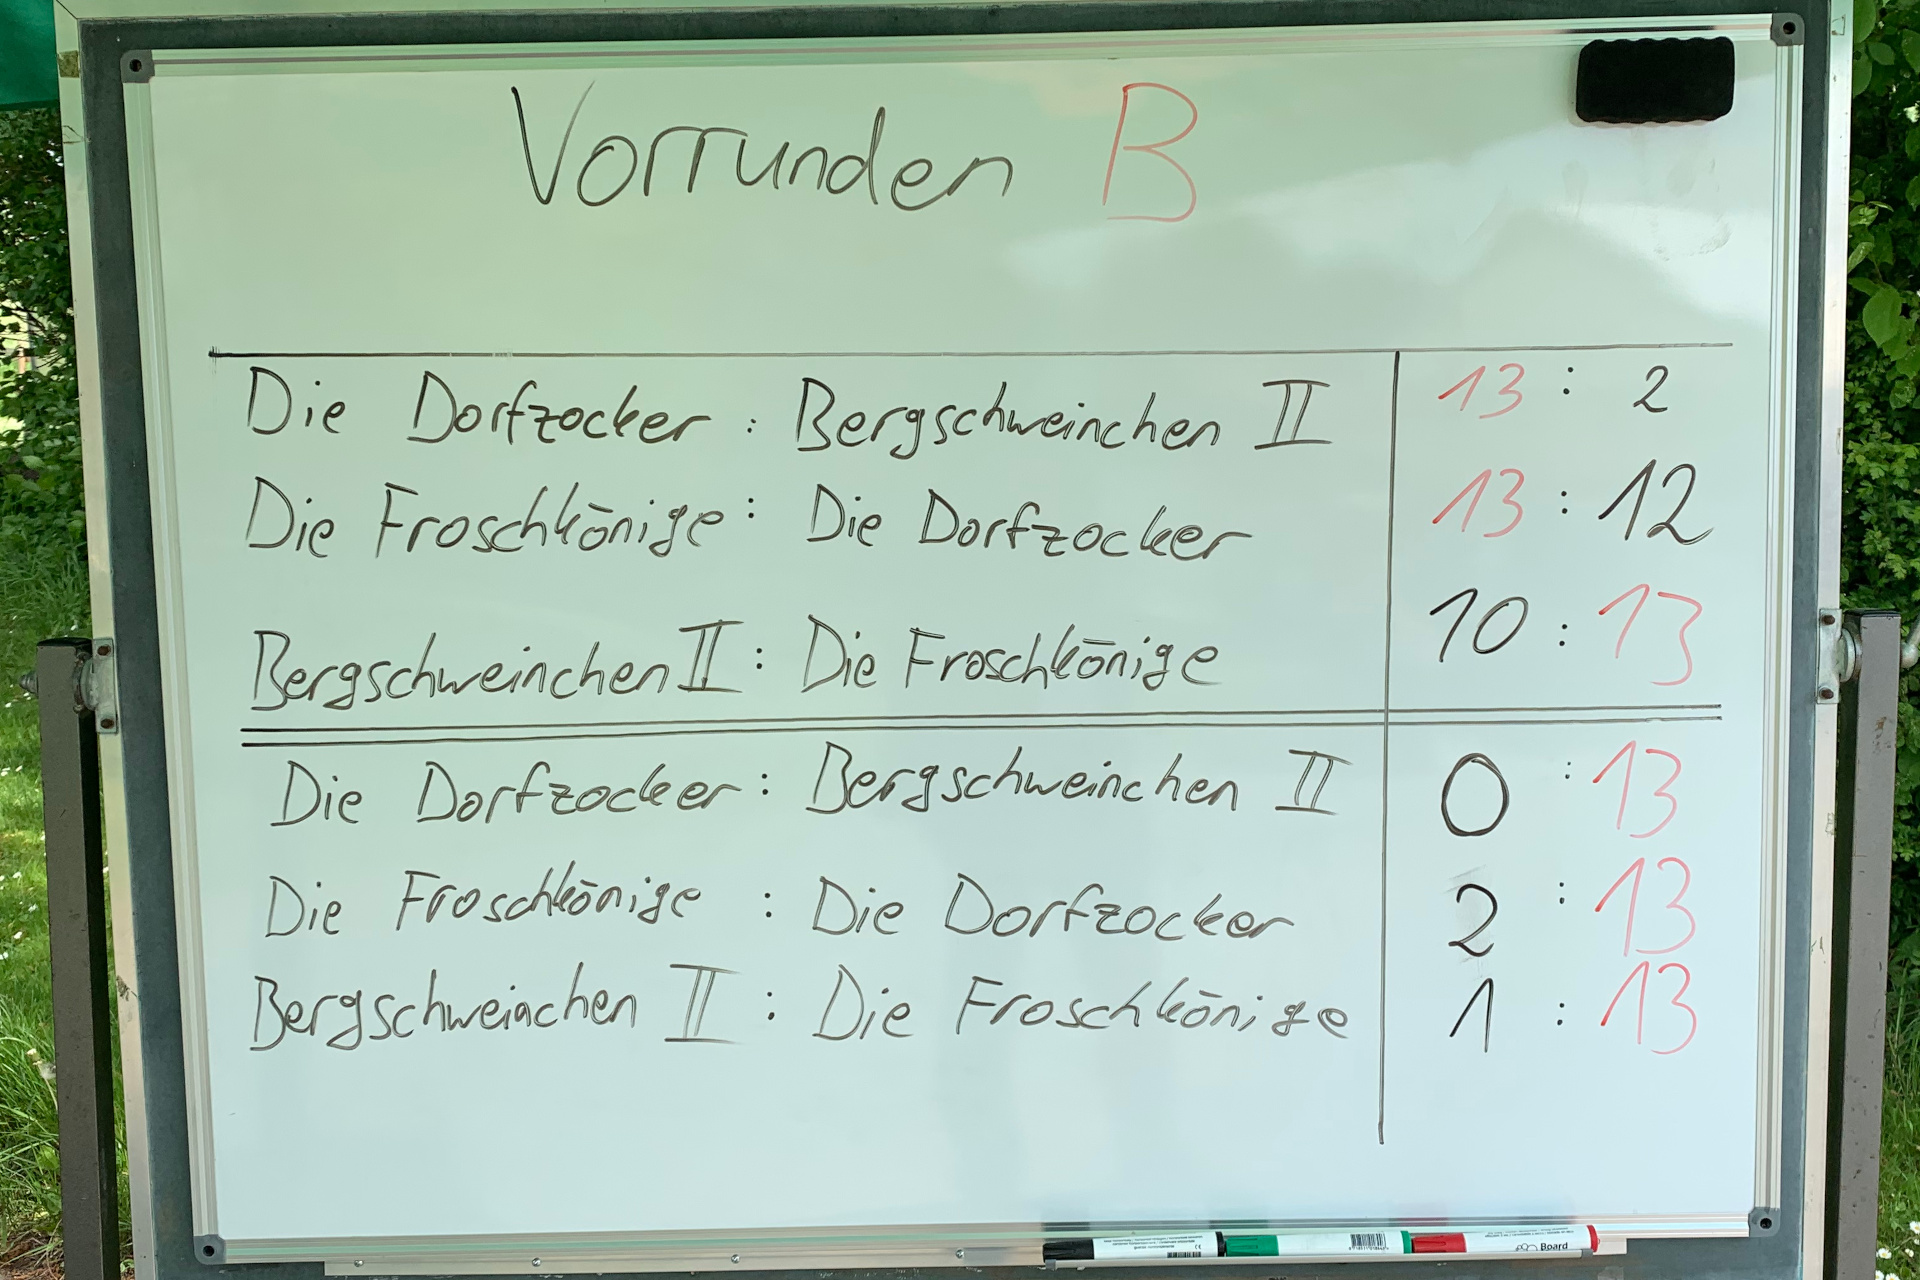 Vorrunden B
Die Dorfzocker : Bergschweinchen II 13 : 2
Die Froschkönige : Die Dorfzocker 13 : 12
Bergschweinchen II : Die Froschkönige 10 : 13
Die Dorfzocker : Bergschweinchen II 0 : 13
Die Froschkönige : Die Dorfzocker 2 : 13
Bergschweinchen II : Die Froschkönige 1 : 13
Board